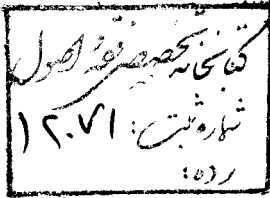 کتابخانه تخصصی فقه و اصول
شماره ثبت: ۱۲۰۷۱
رده: